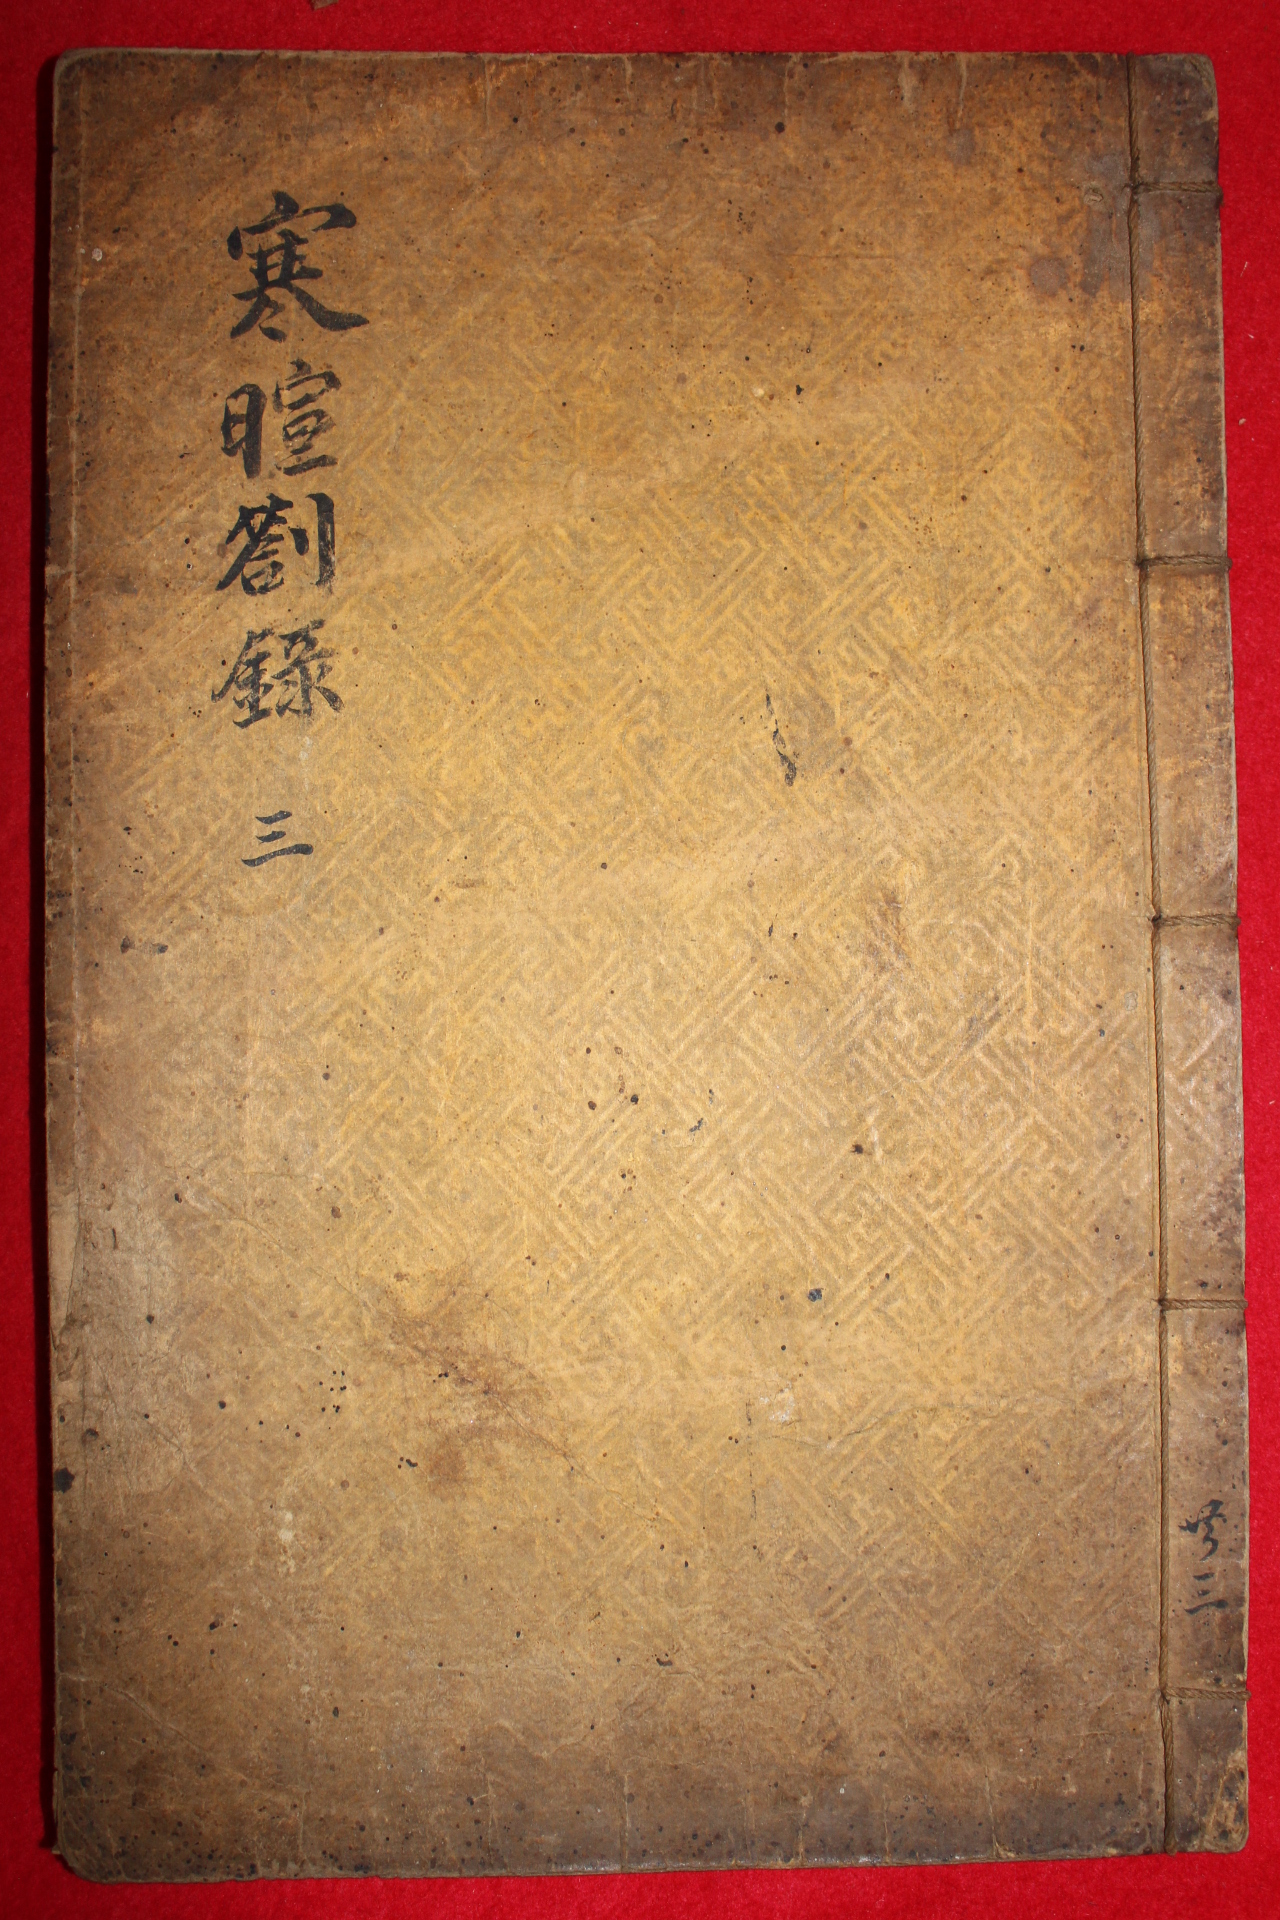 寒暄劄錄 三
共三